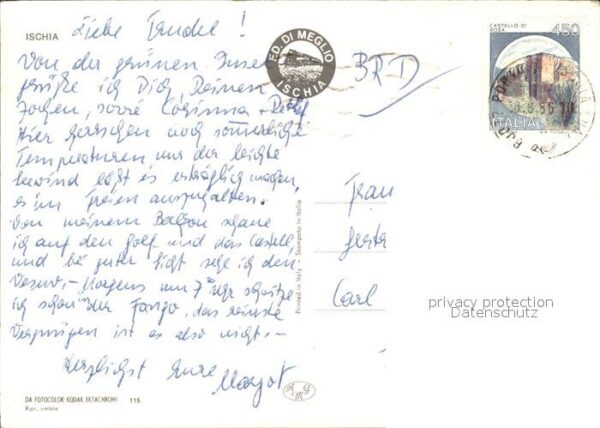 ISCHIA
Liebe !
Von der grünen Insel
grüße ich Dich, Deinen
Jochen, sowie Corinna + Detlef
Hier herrschen noch sommerliche
Temperaturen, nur der leichte
Seewind läßt es erträglich machen,
es im Freien auszuhalten.
Von meinem Balkon schaue
ich auf den Golf und das Castell,
und bei guter Sicht sehe ich den
Vesuv. - Morgens um 7 Uhr schwitze
ich schon der Fango, das reinste
Vergnügen ist es also nicht. -
Herzlichst Eure
Margot
ED. DI MEGLIO
ISCHIA
BRD
CASTELLO DI
450
ITALIA
Frau
Herta
Carl
Printed in Italy - Stampato in Italia
privacy protection
Datenschutz
DA FOTOCOLOR KODAK EKTACHROME 115
Ripr. vietata